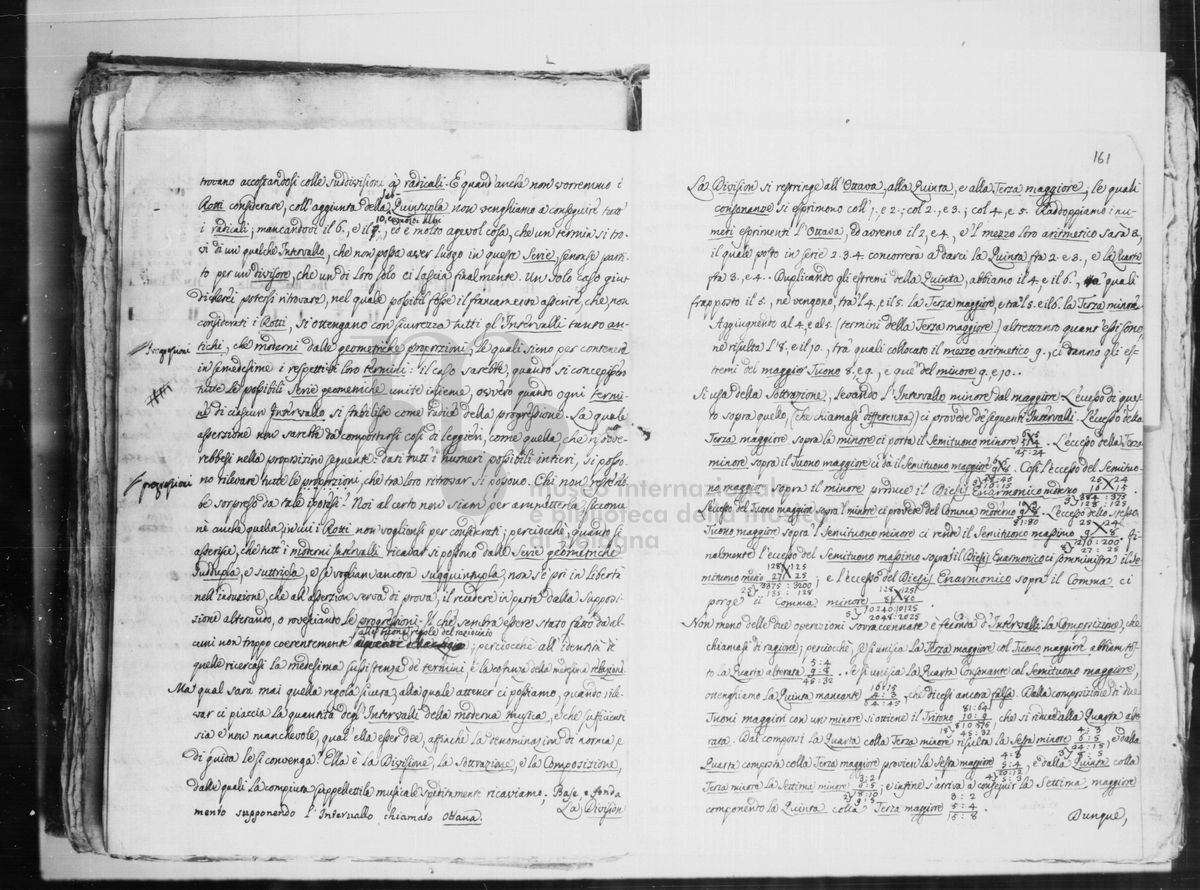 trovano accostandosi colle suddivisioni à radicali. E quand'anche non vorremmo i
Rotti considerare, coll'aggiunta della Quintupla non venghiamo a conseguire tutt'
i radicali, mancandovi il 6., e il 7., ed è molto agevol cosa, che un termin si tro-
vi di un qualche Intervallo, che non possa aver luogo in queste Serie, se non se parti-
to per un divisore, che un di loro solo ci lascia finalmente. Un solo caso giu-
dicherei potersi ritrovare, nel quale possibil fosse il francamente asserire, che non
considerati i Rotti, si ottengano con sicurezza tutti gl'Intervalli tanto an-
tichi, che moderni dalle geometriche proporzioni, le quali sieno per contenere
in semedesime i respettivi loro termini: il caso sarebbe, quando si concepissero
tutte le possibili Serie geometriche unite insieme, ovvero quando ogni termi-
ne di ciascun Intervallo si stabilisse come radice della progressione. La quale
asserzione non sarebbe da comportarsi così di leggieri, come quella che risolve-
rebbesi nella proposizion seguente: dati tutt'i numeri possibili intieri, si posso-
no rilevare tutte le proporzioni, che tra loro ritrovar si possono. Chi non resterèb-
be sorpreso da tale ipotesi? Noi al certo non siam per ammetterla, siccome
nè anche quella, in cui i Rotti non vogliansi per considerati; perciocchè, quanto si
asserisce, che tutt'i moderni Intervalli ricavar si possono dalle Serie geometriche
Suddupla, e suttripla, e se vogliam ancora suqquintupla, non si è più in libertà
nell'induzione, che all'asserzion serva di prova, il recedere in parte dalla supposi-
zione alterando, o rovesciando le progressioni. Il che sembra essere stato fatto da al-
cuni non troppo coerentemente alle buone regole del raziocinio; perciocchè all'identità
quelle ricercasi la medesima sussistenza de' termini, e la costanza della medesima relazione.
Ma qual sarà mai quella regola sicura, alla quale attener ci possiamo, quando rile-
var ci piaccia la quantità degl'Intervalli della moderna musica, e che sufficienti
sia e non manchevole, qual ella esser dee, affinchè la denominazion di norma e
di guida le si convenga? Ella è la Divisione, la Sottrazione, e la Composizione,
dalle quali la compiuta suppellettile musicale speditamente ricaviamo, Base e fonda-
mento supponendo l'Intervallo chiamato Ottava.
La Division
Proporzioni
progressioni
161
La Division si restringe all'Ottava, alla Quinta, e alla Terza maggiore, le quali
consonanze si esprimono coll'1. e 2.; col 2., e 3.; col 4., e 5. Raddoppiamo i nu-
meri esprimenti l'Ottava, ed avremo il 2, e 4., e 'l mezzo loro aritmetico sarà 3,
il quale posto in serie 2.3.4. concorrerà a darci la Quinta fra 2. e 3., e la Quarta
fra 3., e 4.. Duplicando gli estremi della Quinta, abbiamo il 4, e il 6., tra' quali
frapposto il 5., ne vengono, tra 'l 4. e il 5. la Terza maggiore, e tra 'l 5. e il 6. la Terza minore.
Aggiugnento al 4. e al 5. (termini della Terza maggiore) altrettanto quant'essi sono,
ne risulta l'8., e il 10., tra' quali collocato il mezzo aritmetico 9., ci danno gli es-
tremi del maggior Tuono 8. e 9., e que' del minore 9. e 10..
Si usa della Sottrazione, levando l'Intervallo minore dal maggiore. L'eccesso di ques-
to sopra quello, (che chiamasi differenza) ci provede de' seguenti Intervalli. L'eccesso della
Terza maggiore sopra la minore ci porta il Semituono minore 25:24. L'eccesso della Terza
minore sopra il Tuono maggiore ci dà il Semituono maggiore 16:15. Così l'eccesso del Semituo-
no maggiore sopra il minore produce il Diesis Enarmonico moderno
L'eccesso del Tuono maggior sopra 'l minore ci provede del Comma moderno 81:80. L'eccesso dello stesso
Tuono maggiore sopra 'l Semituono minore ci rende il Semituono massimo 27:25. Fi-
nalmente l'eccesso del Semituono massimo sopra il Diesis Enarmonico ci somministra il Se-
mituono medio 135:128; e l'eccesso del Diesis Enarmonico sopra il Comma ci
porge il Comma minore 2048:2025.
Non meno delle due operazioni sovraccennate è feconda d'Intervalli la Composizione, che
chiamasi di ragione; perciocchè, se s'unisca la Terza maggiore col Tuono maggiore abbiam tos-
to la Quarta alterata 5:4 9:8 45:32. E se si unisca la Quarta Consonante col Semituono maggiore,
otteniamo la Quinta mancante 16:15 4:3 64:45, che dicesi ancora falsa. Dalla composizione di due
Tuoni maggiori con un minore si ottiene il Tritono 81:64 10:9 810:576 45:32 che si riduce alla Quarta alte-
rata. Dal comporsi la Quarta colla Terza minore risulta la Sesta minore 4:3 6:5 24:15 8:5, e dalla
Quarta composta colla Terza maggiore provien la Sesta maggiore 4:3 5:4 20:12 5:3, e dalla Quinta colla
Terza minore la Settima minore 3:2 6:5 18:10 9:5; e infine s'arriva a conseguir la Settima maggiore
componento la Quinta colla Terza maggiore 3:2 5:4 15:8.
Dunque,
museo internazionale
e biblioteca della musica
di bologna